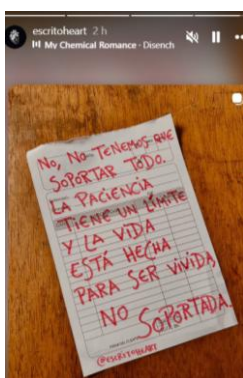 escritoheart 2 h
My Chemical Romance • Disench
No, No TENEMOS QUE
SOPORTAR TODO.
LA PACIENCIA
TIENE UN LÍMITE
Y LA VIDA
ESTÁ HECHA
PARA SER VIVIDA,
NO SOPORTADA.
@ESCRITOHEART